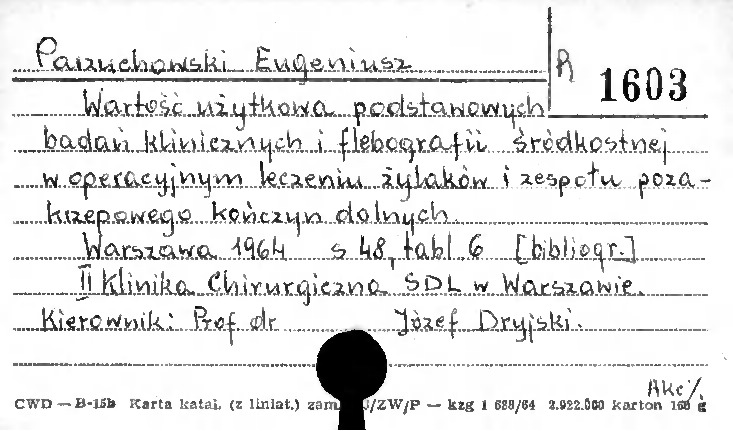 Parzuchowski Eugeniusz
R 1603
Wartość użytkowa podstawowych
badań klinicznych i flebografii śródkostnej
w operacyjnym leczeniu żylaków i zespołu poza-
krzepowego kończyn dolnych
Warszawa 1964 s 48, tabl 6 [bibliogr.]
II Klinika Chirurgiczna SDL w Warszawie.
Kierownik: Prof. dr Józef Dryjski.
Akc/.
CWD — B-15b Karta katal. (z liniat.) zam. /ZW/P — kzg 1 688/64 2.922.000 karton 160 g